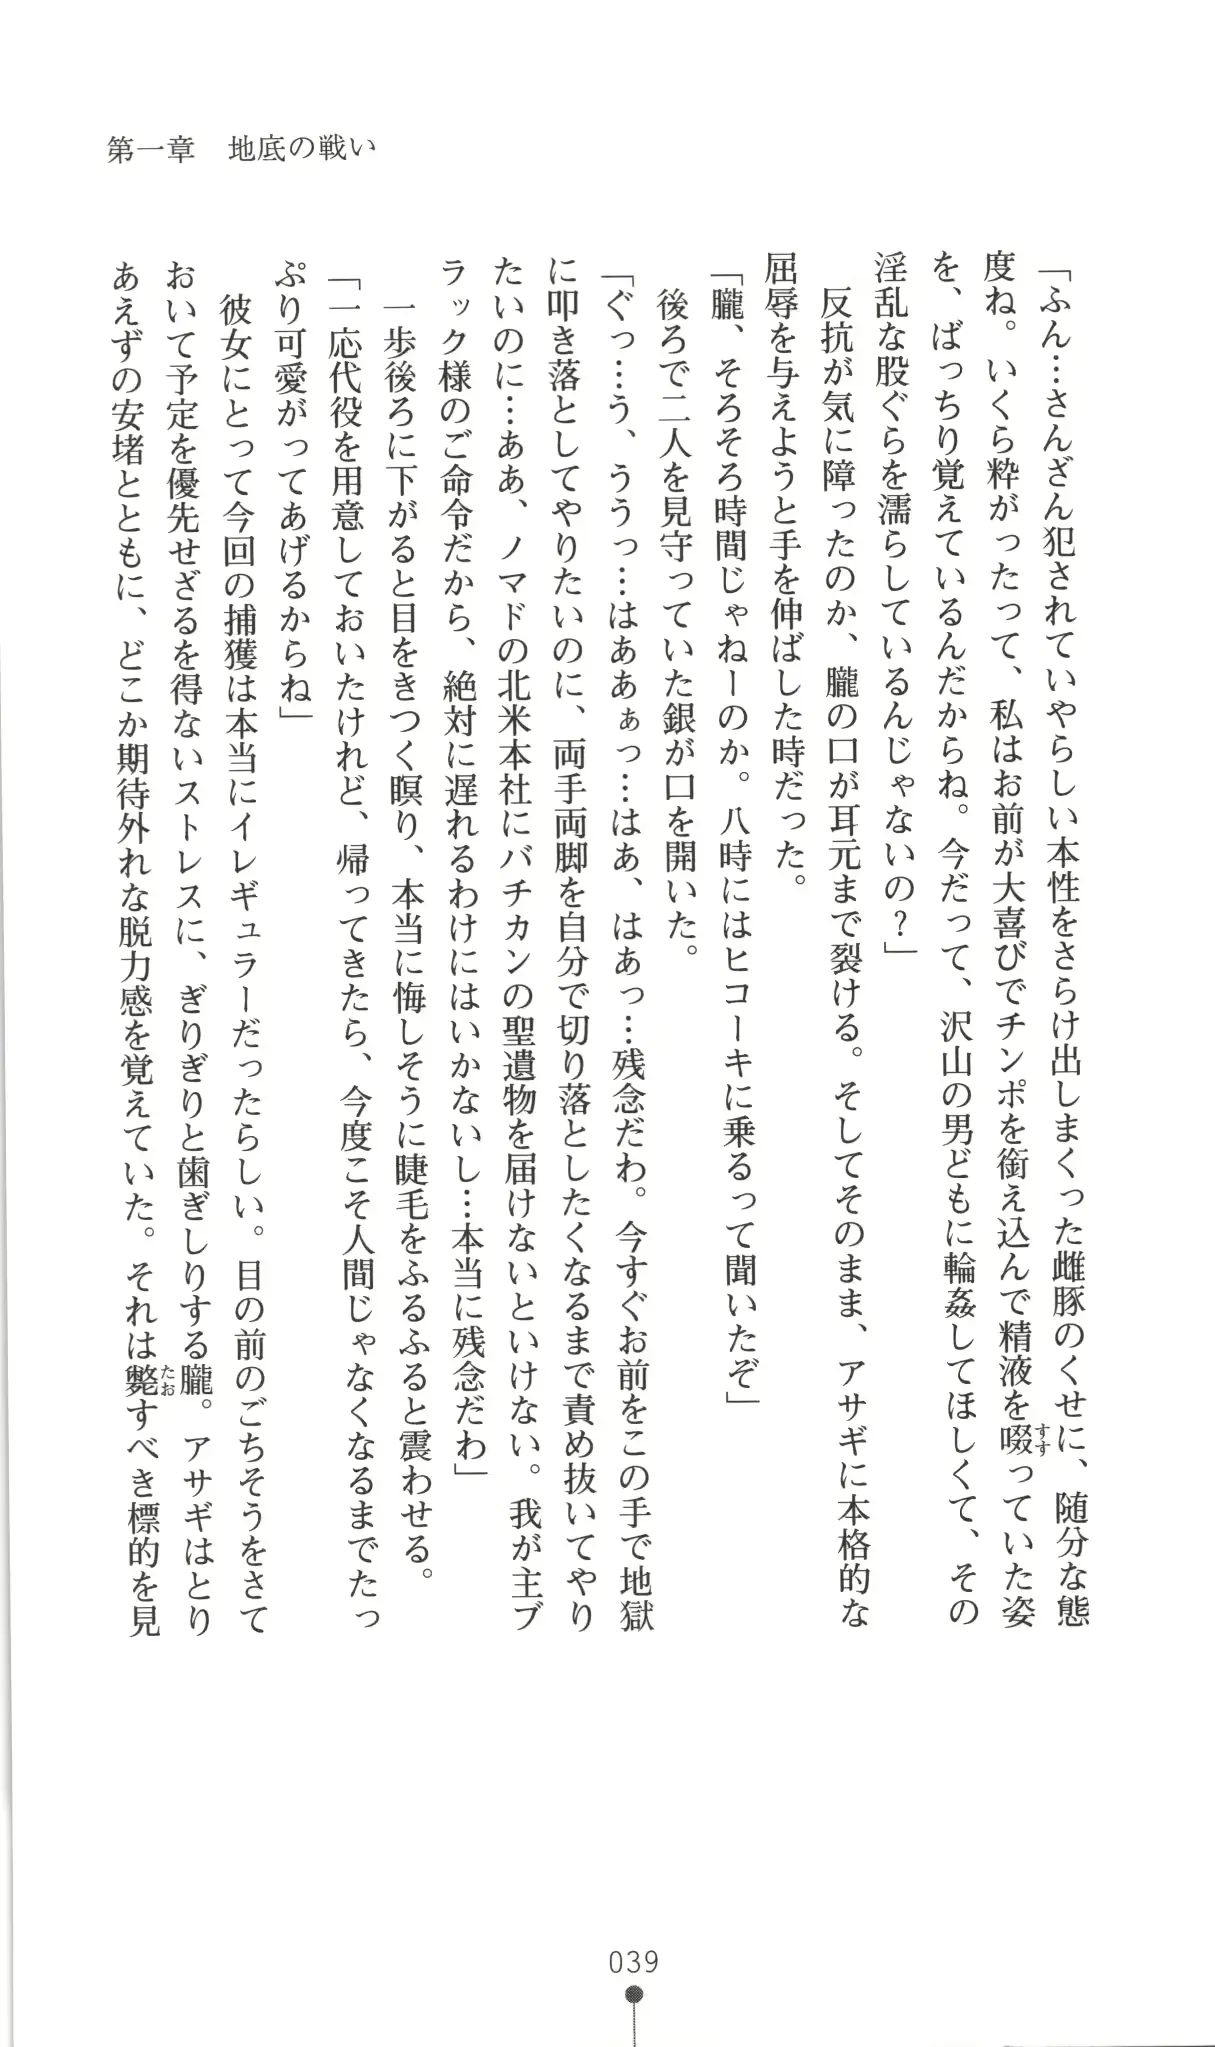 第一章　地底の戦い
「ふん…さんざん犯されていやらしい本性をさらけ出しまくった雌豚のくせに、随分な態
度ね。いくら粋がったって、私はお前が大喜びでチンポを銜え込んで精液を啜っていた姿
を、ばっちり覚えているんだからね。今だって、沢山の男どもに輪姦してほしくて、その
淫乱な股ぐらを濡らしているんじゃないの？」
　反抗が気に障ったのか、朧の口が耳元まで裂ける。そしてそのまま、アサギに本格的な
屈辱を与えようと手を伸ばした時だった。
「朧、そろそろ時間じゃねーのか。八時にはヒコーキに乗るって聞いたぞ」
　後ろで二人を見守っていた銀が口を開いた。
「ぐっ…う、ううっ…はああぁっ…はあ、はあっ…残念だわ。今すぐお前をこの手で地獄
に叩き落としてやりたいのに、両手両脚を自分で切り落としたくなるまで責め抜いてやり
たいのに…ああ、ノマドの北米本社にバチカンの聖遺物を届けないといけない。我が主ブ
ラック様のご命令だから、絶対に遅れるわけにはいかないし…本当に残念だわ」
　一歩後ろに下がると目をきつく瞑り、本当に悔しそうに睫毛をふるふると震わせる。
「一応代役を用意しておいたけれど、帰ってきたら、今度こそ人間じゃなくなるまでたっ
ぷり可愛がってあげるからね」
　彼女にとって今回の捕獲は本当にイレギュラーだったらしい。目の前のごちそうをさて
おいて予定を優先せざるを得ないストレスに、ぎりぎりと歯ぎしりする朧。アサギはとり
あえずの安堵とともに、どこか期待外れな脱力感を覚えていた。それは斃すべき標的を見
039